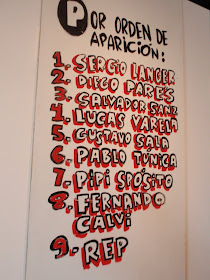 POR ORDEN DE
APARICIÓN:
1. SERGIO LANGER
2. DIEGO PARÉS
3. SALVADOR SANZ
4. LUCAS VARELA
5. GUSTAVO SALA
6. PABLO TÚNICA
7. PIPI SPÓSITO
8. FERNANDO
CALVI
9. REP